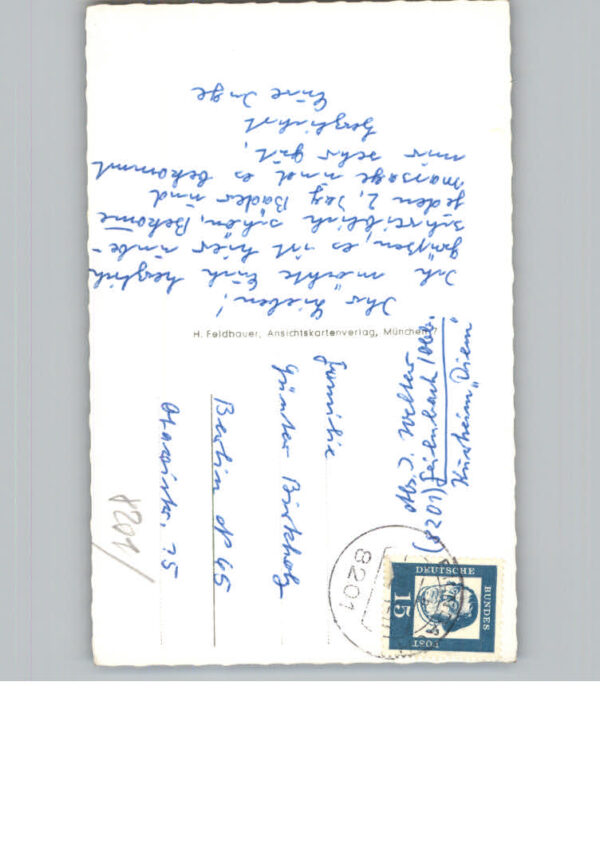 Ihr Lieben!
Ich möchte Euch herzlich
grüßen, es ist hier unbe-
schreiblich schön, Bekome
jeden 2. Tag Bäder und
massage und es bekommt
mir sehr gut,
herzlichst
Eure Inge
H. Feldhauer, Ansichtskartenverlag, München 7
Abs. J. Welker
(8201) Feilnbach / Obb.
Kurheim "Diem"
Familie
Günter Birkholz
Berlin 45
75
8201/
8201
DEUTSCHE
BUNDES
POST
15